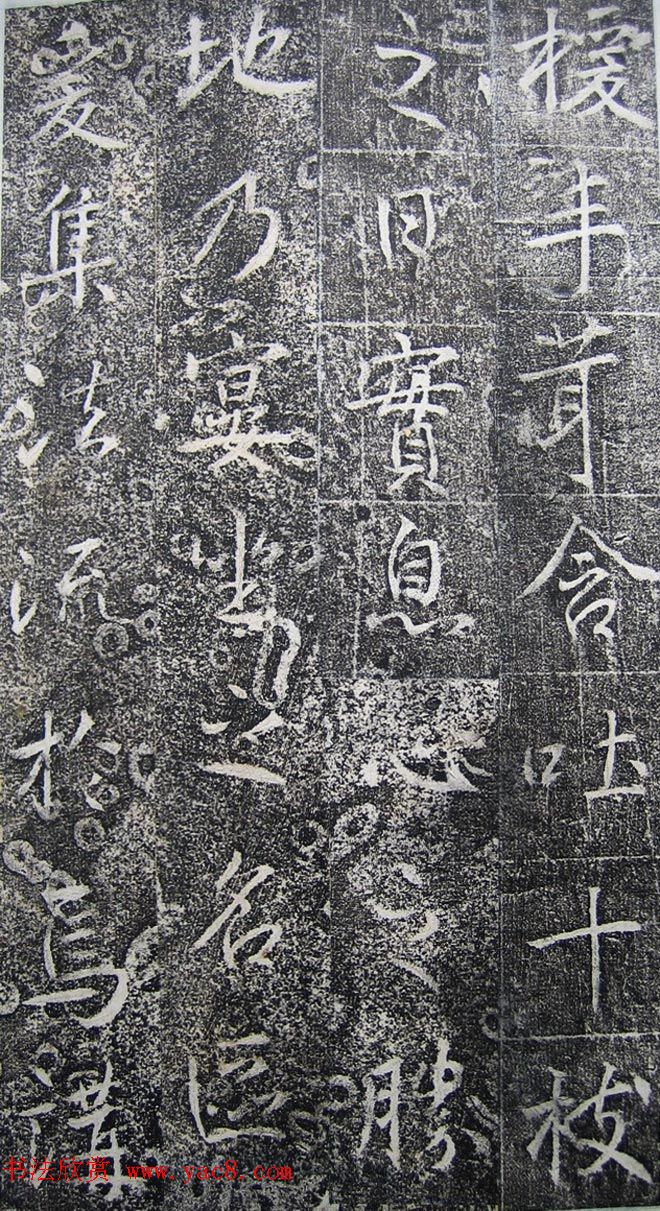 茸含吐十枝
之日實息心之勝
地乃宴之名區
爰集法流於焉講
书法欣赏 www.yac8.com